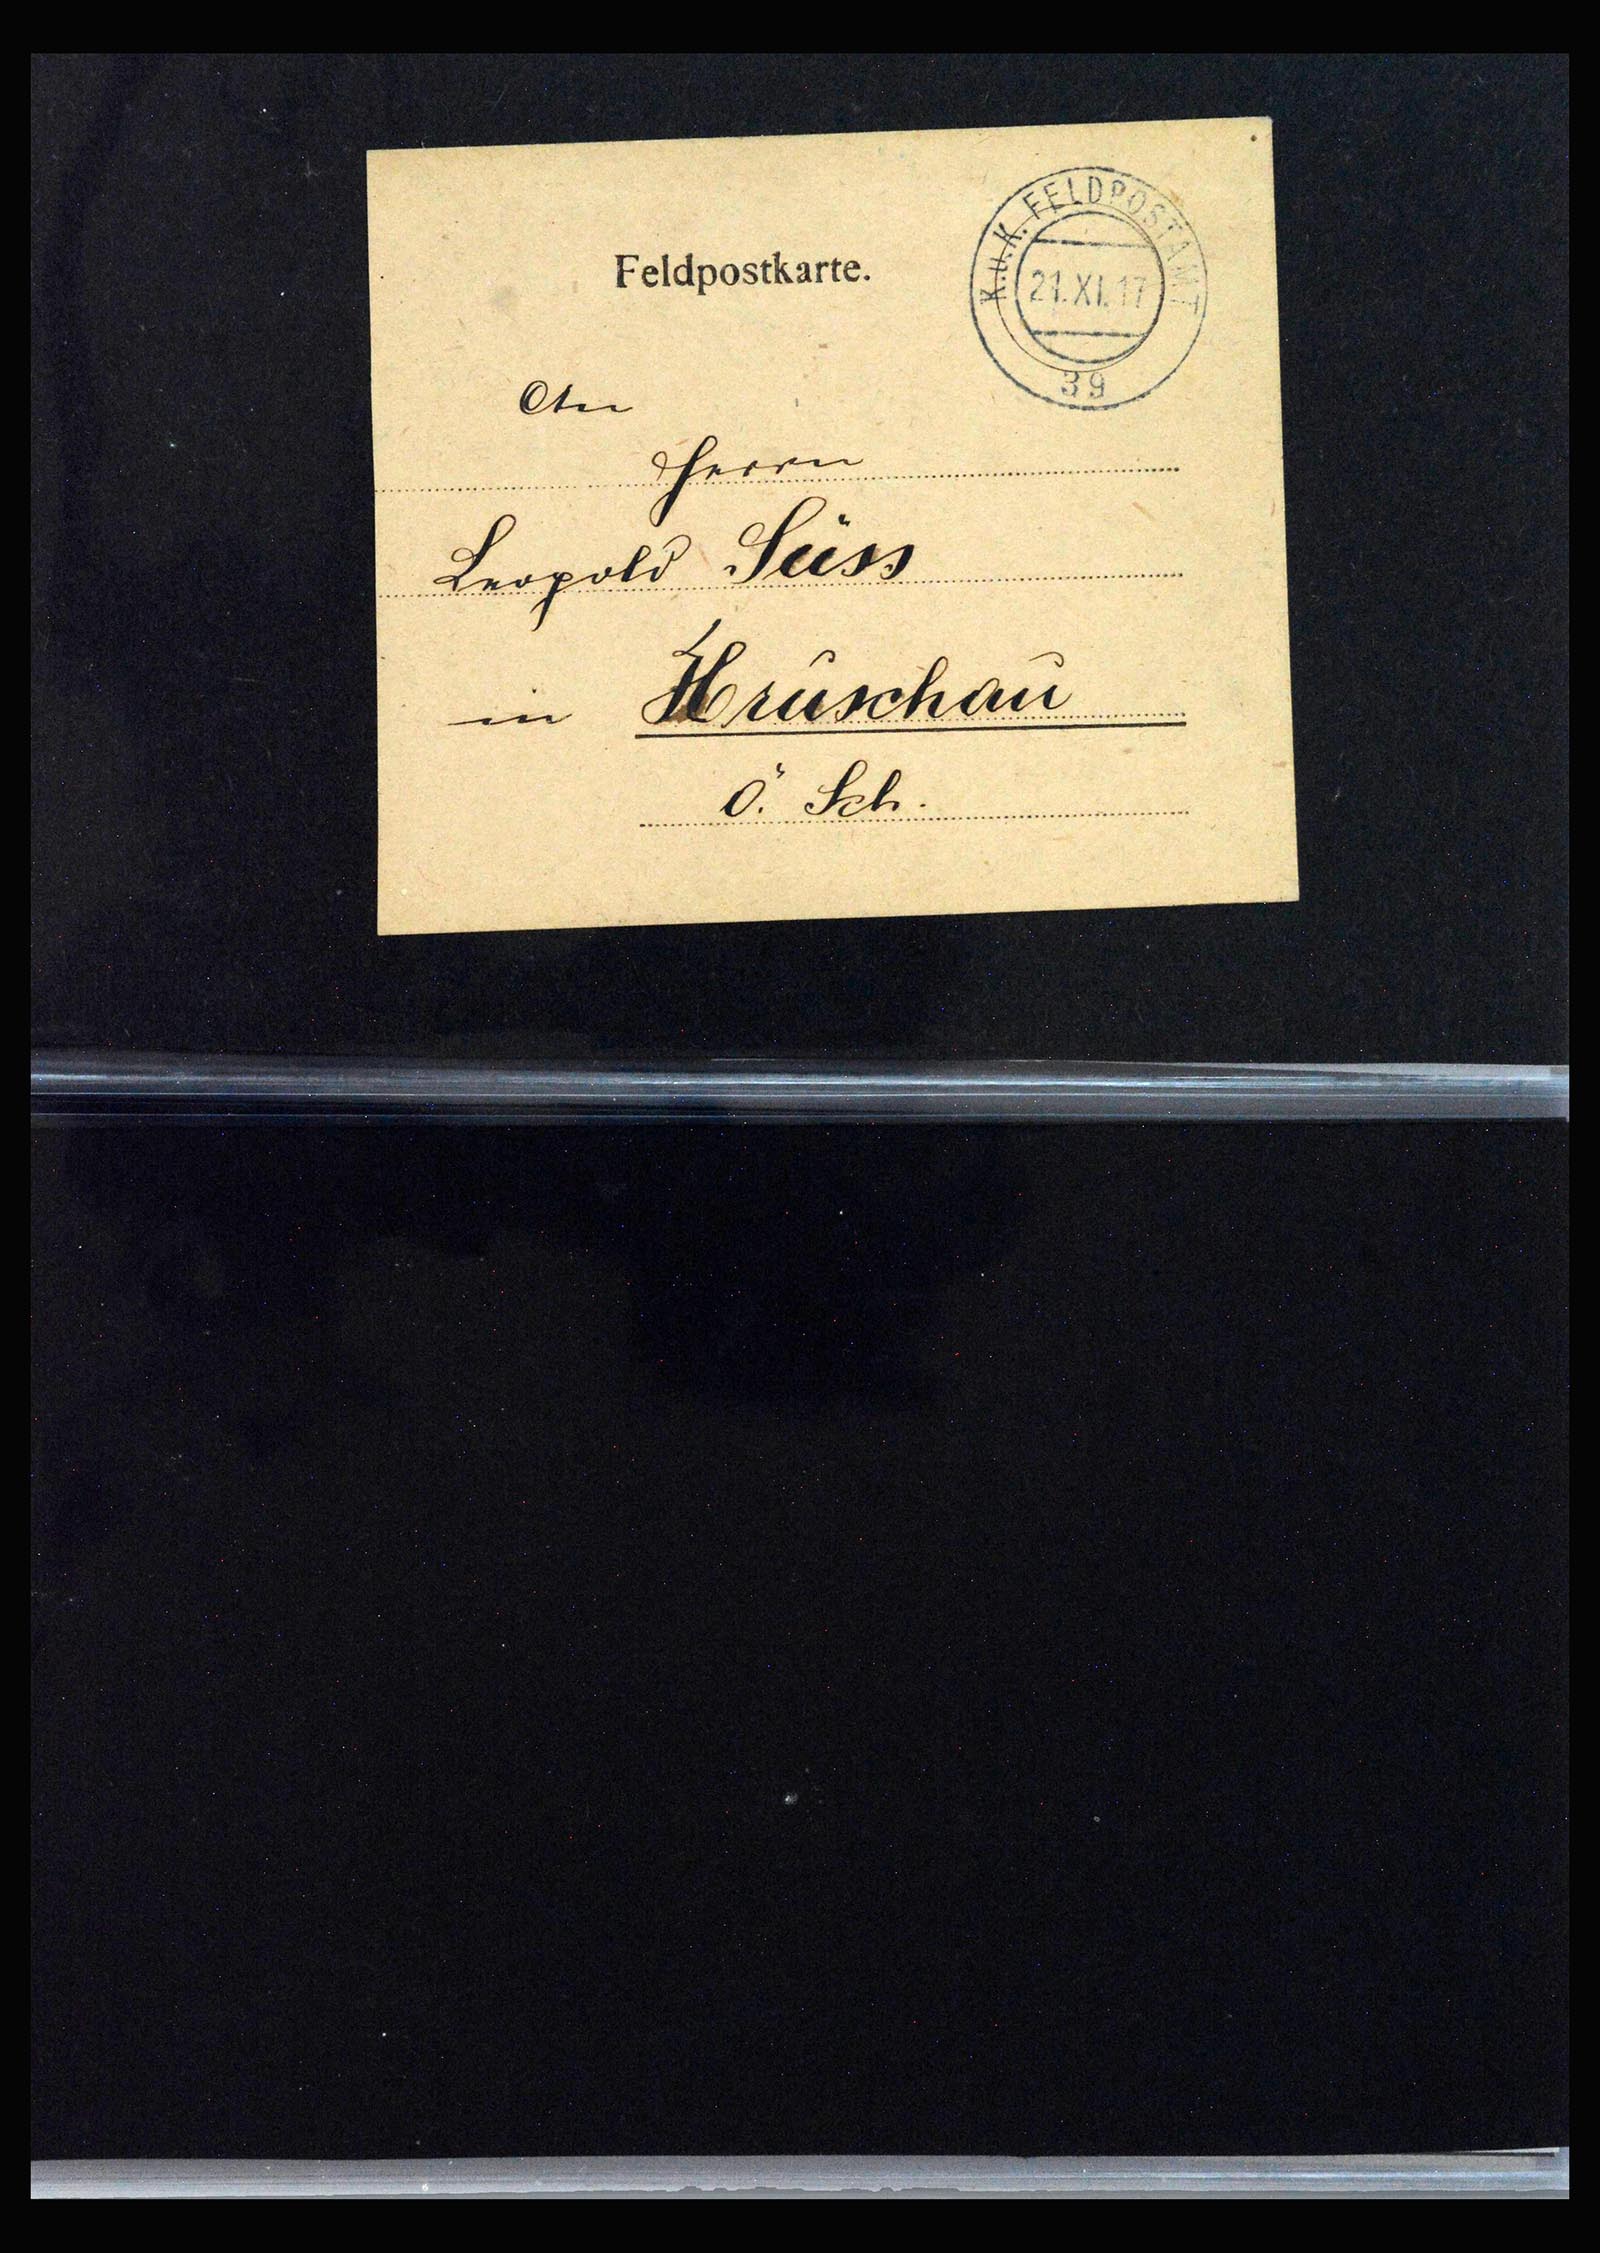 K.u.K. FELDPOSTAMT
21.XI.17
39
Feldpostkarte.
An
Herrn
Leopold Süss
in Hruschau
Ö. Sch.